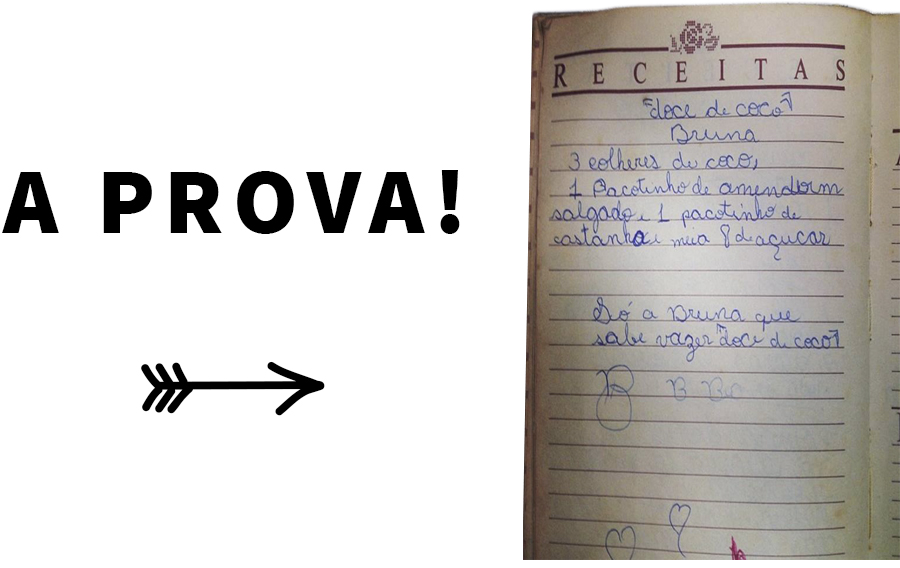 A PROVA!
RECEITAS
"doce de coco"
Bruna
3 colheres de coco,
1 Pacotinho de amendoim
salgado e 1 pacotinho de
castanha e meia de açucar
Só a Bruna que
sabe vazer "doce de coco"
B B Br